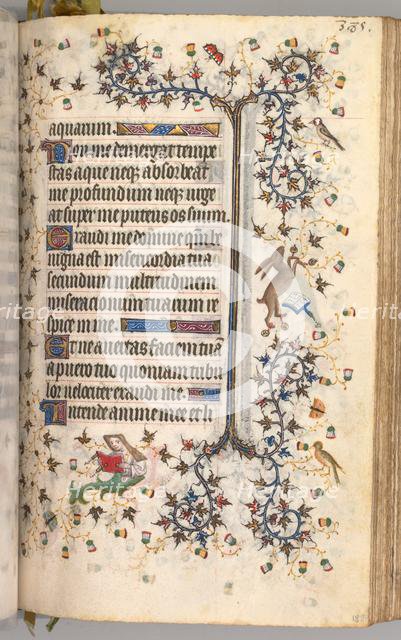 385.
aquarum.
Non me demergat tempe
stas aque neq; absorbeat
me profundum neq; urge
at super me puteus os suum.
Exaudi me domine qm be
nigna est misericordia tua
secundum multitudinem
miseracionum tuarum re
spice in me.
Et ne avertas faciem tuā
a puero tuo quoniam tribu
lor velociter exaudi me.
Intende anime mee et li
Heritage
Heritage
Heritage
Heritage